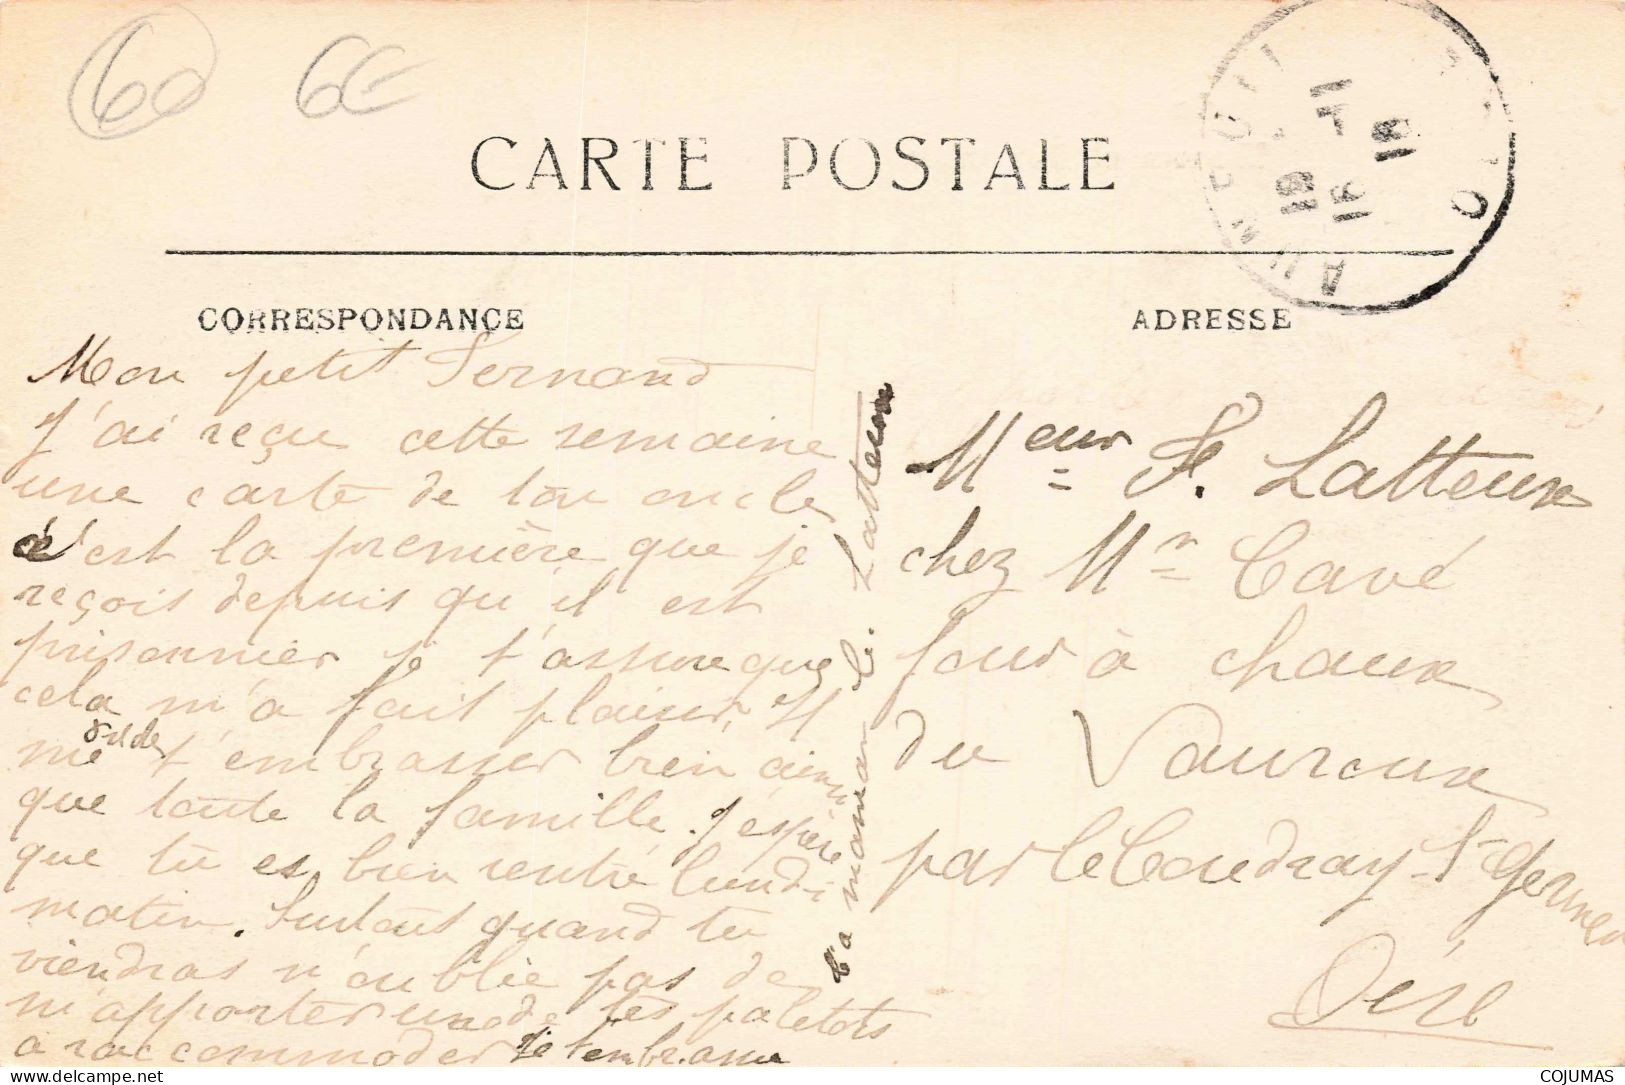 60 6E
CARTE POSTALE
CORRESPONDANCE
ADRESSE
Mon petit Fernand
J'ai reçu cette semaine
une carte de ton oncle
c'est la première que je
reçois depuis qu'il est
prisonnier je t'assure que
cela m'a fait plaisir, Il
me dit de t'embrasser bien ainsi
que toute la famille. J'espère
que tu es bien rentré lundi
matin. Surtout quand tu
viendras n'oublie pas de
m'apporter un de tes paletots
à raccommoder je t'embrasse
ta maman L. Latteux
Meur F. Latteux
chez Mr Cavé
four à chaux
du Vauroux
par le Coudray St Germer
Oise
COJUMAS